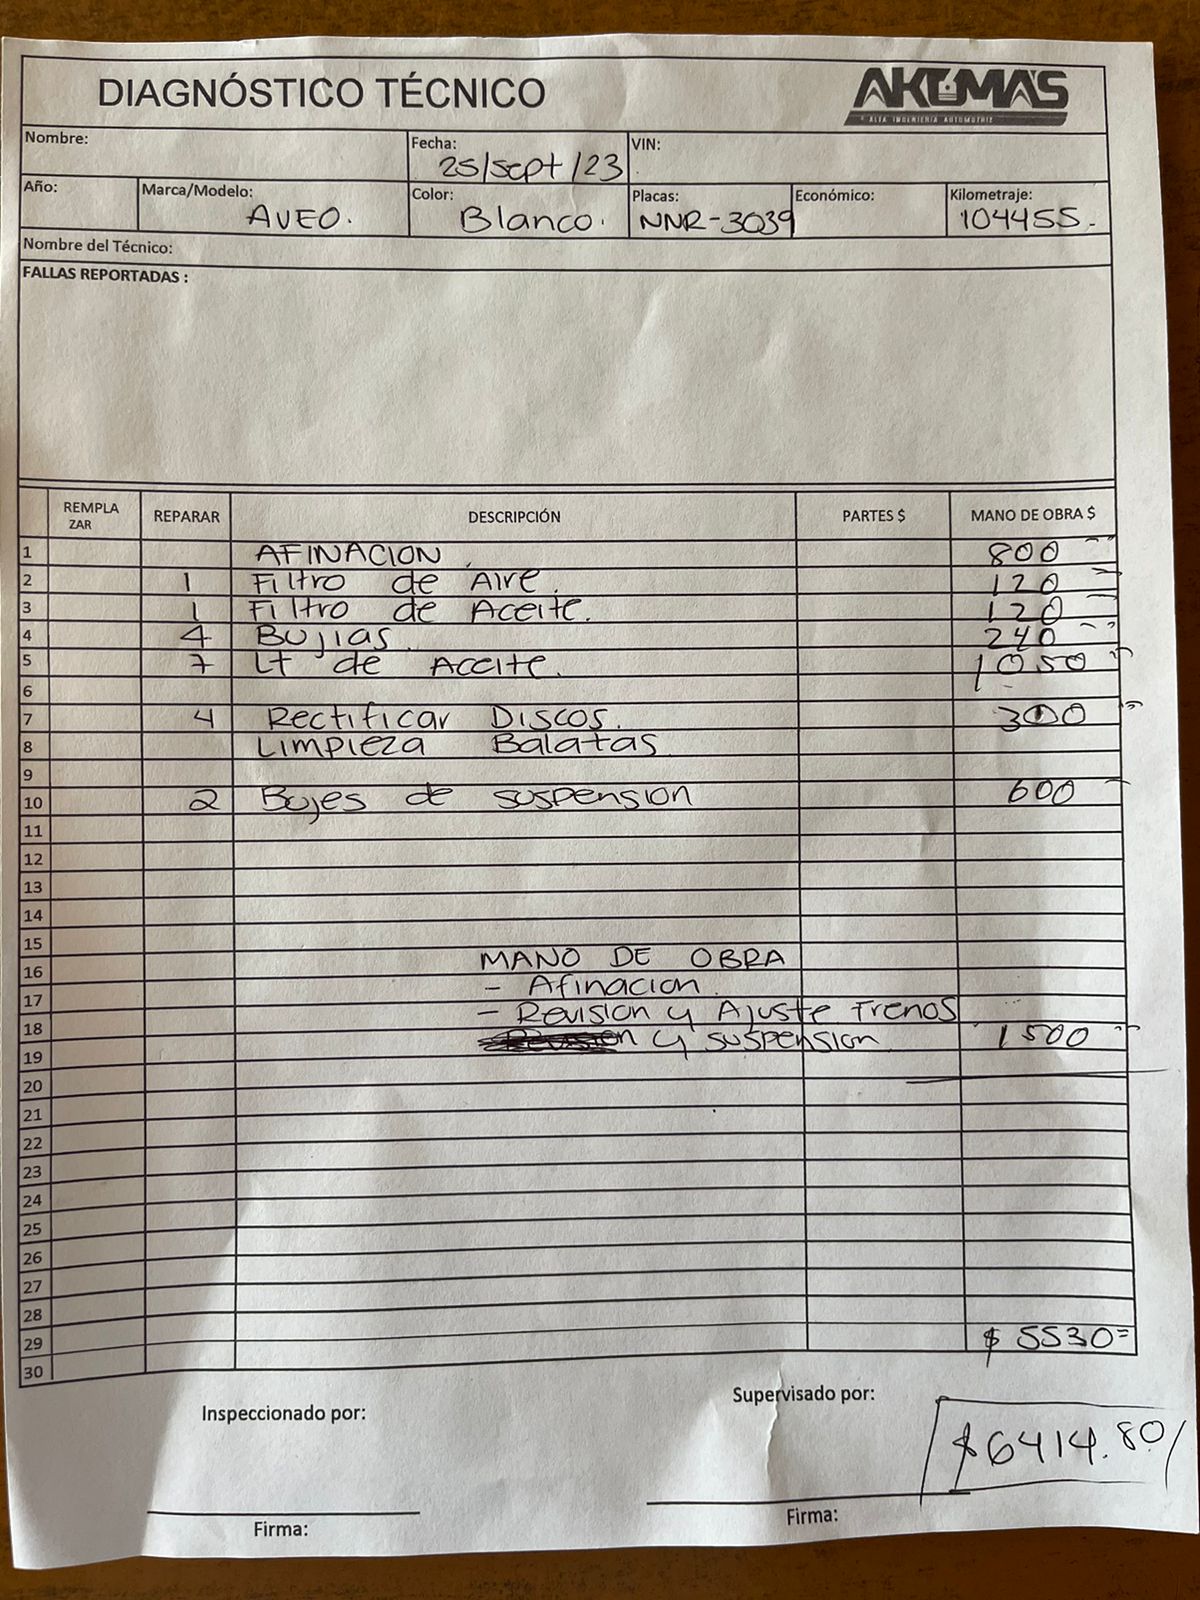 DIAGNÓSTICO TÉCNICO
AKUMA'S
ALTA INGENIERIA AUTOMOTRIZ
Nombre:
Fecha: 25/sept/23
VIN:
Año:
Marca/Modelo: AVEO.
Color: Blanco.
Placas: NNR-3039
Económico:
Kilometraje: 104455.-
Nombre del Técnico:
FALLAS REPORTADAS :
REMPLA ZAR REPARAR DESCRIPCIÓN PARTES $ MANO DE OBRA $
1 AFINACION. 800
2 1 Filtro de Aire. 120
3 1 Filtro de Aceite. 120
4 4 Bujias. 240
5 7 Lt de Aceite. 1050
6
7 4 Rectificar Discos. 300
8 Limpieza Balatas
9
10 2 Bujes de suspension 600
11
12
13
14
15
16 MANO DE OBRA
17 - Afinacion.
18 - Revision y Ajuste Frenos
19 y suspension 1500
20
21
22
23
24
25
26
27
28
29 $ 5530=
30
Inspeccionado por:
Supervisado por:
$6414.80/
Firma:
Firma: